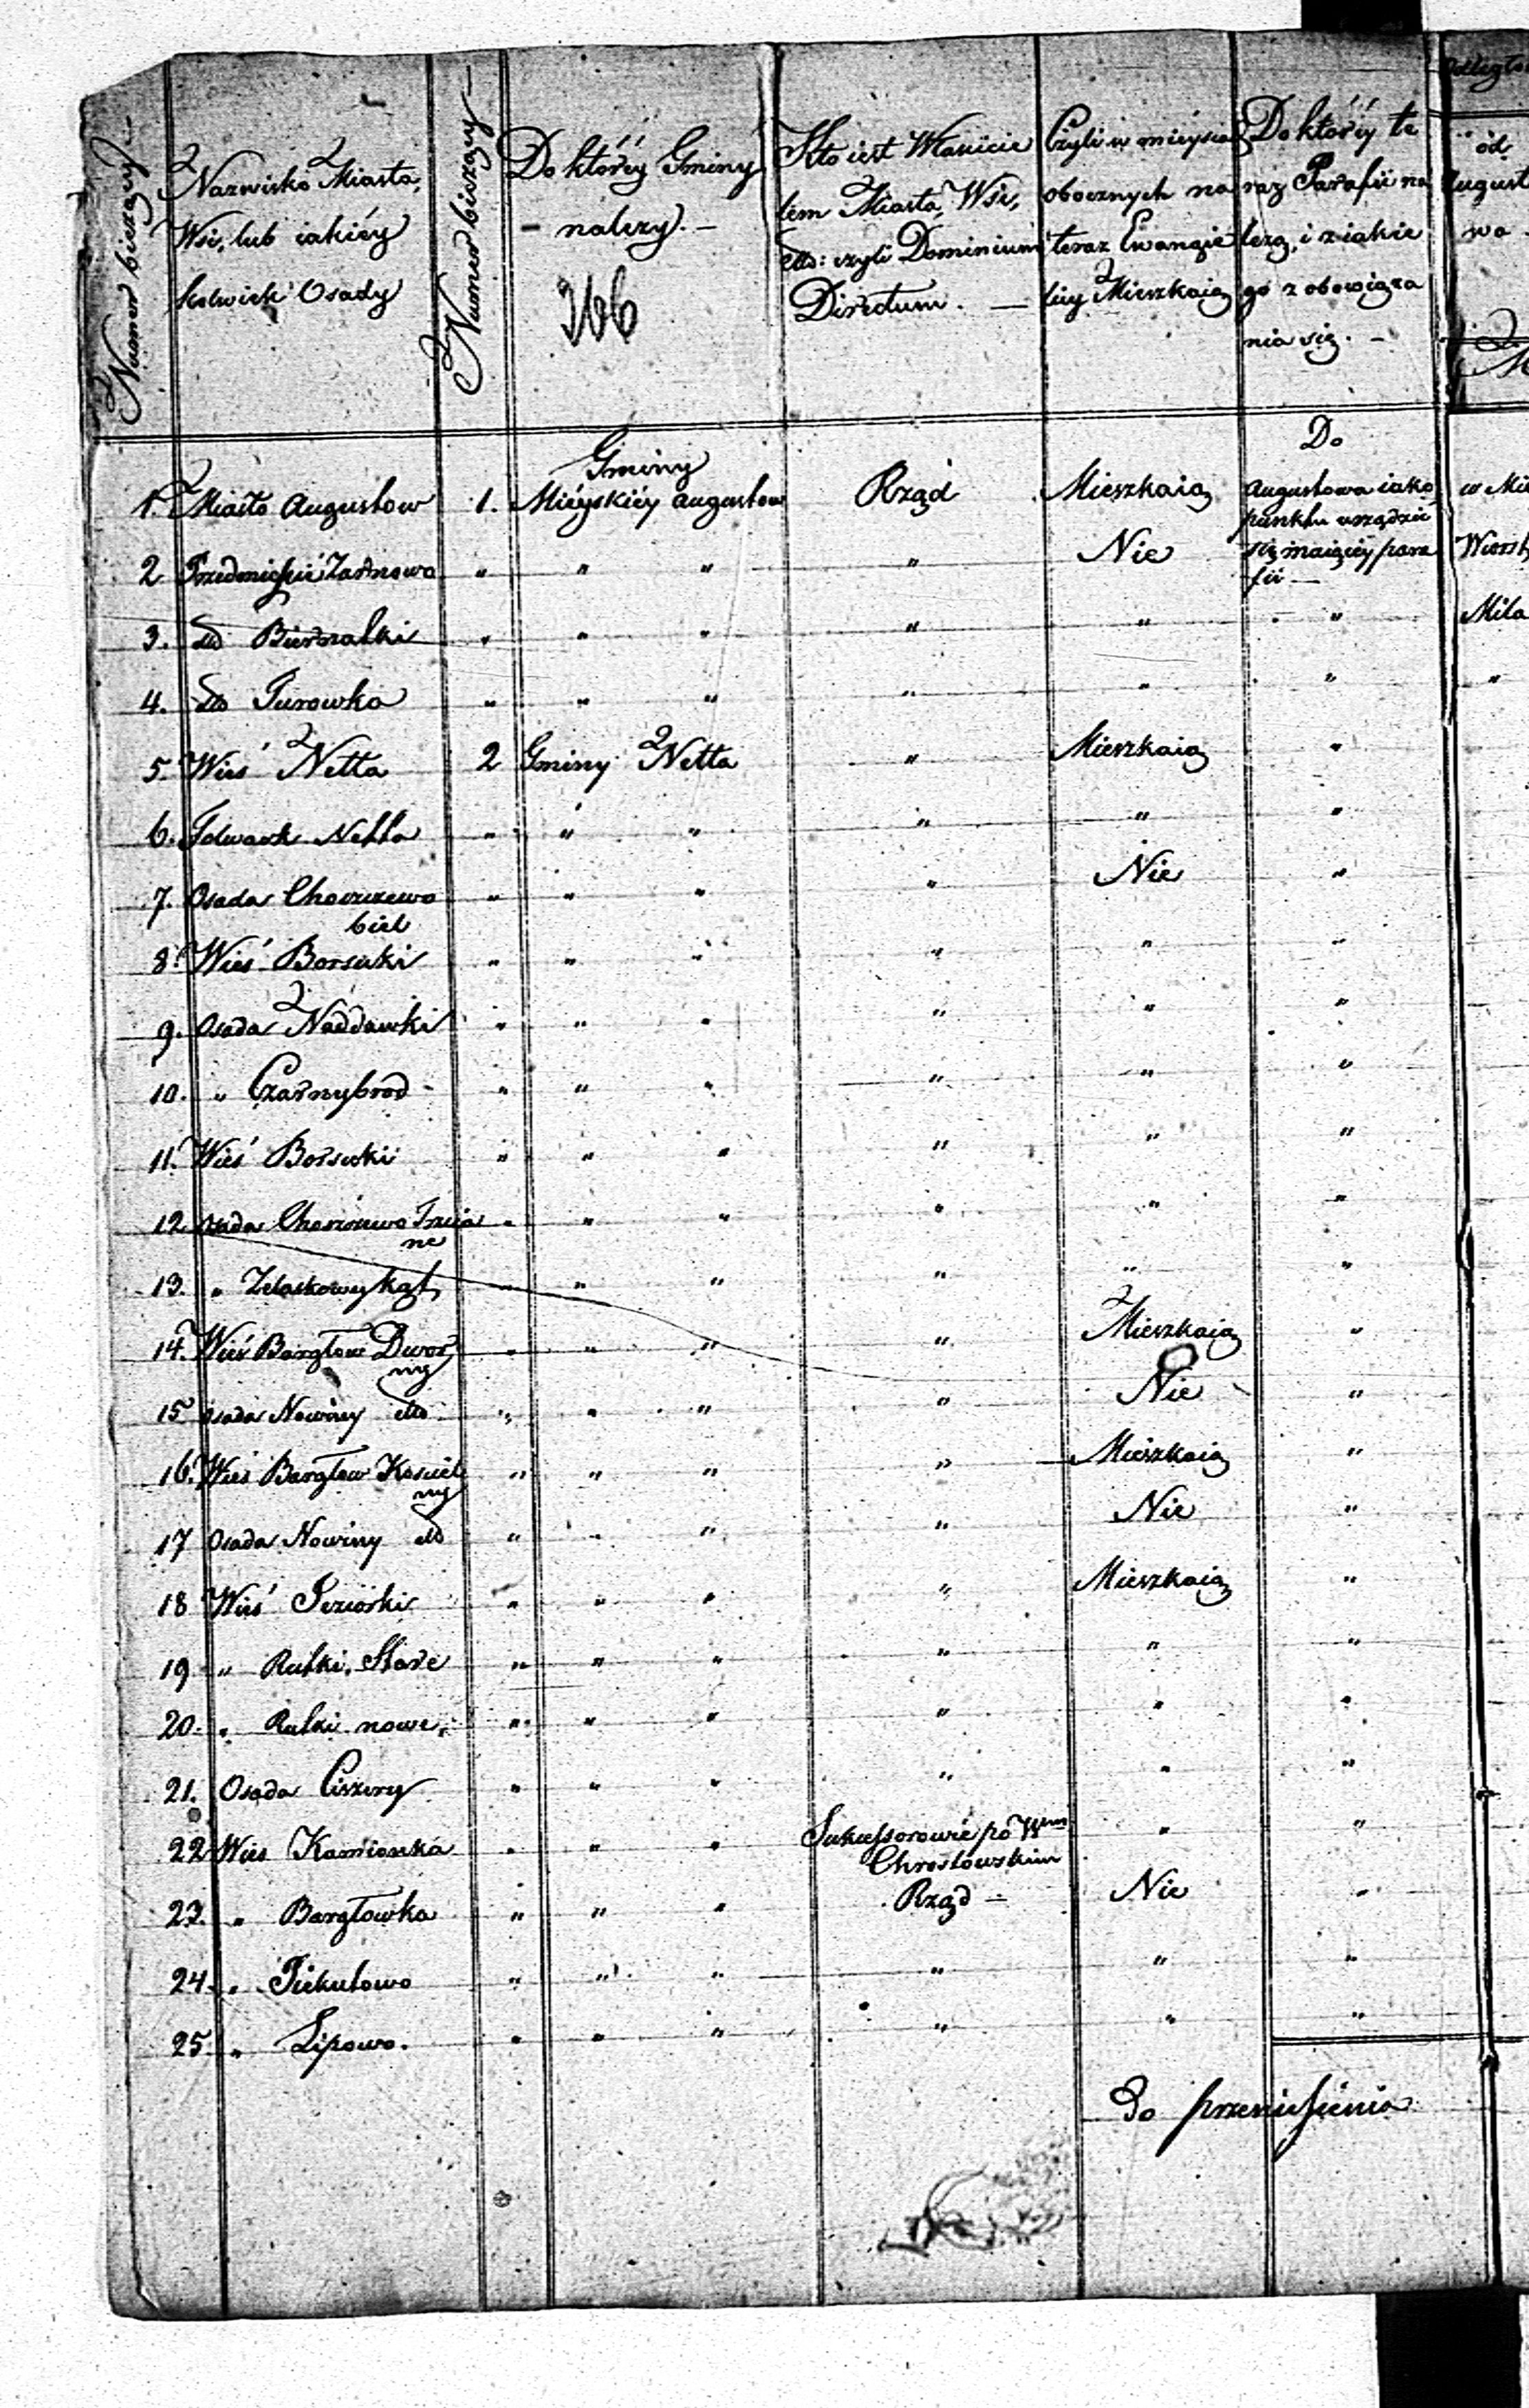 Numer bieżący —
Nazwisko Miasta,
Wsi, lub iakiéy
kolwiek Osady
Numer bieżący —
Do któréy Gminy
- należy. -
366
Kto iest Własicie
lem Miasta, Wsi,
etto: czyli Dominium
Directum. —
Czyli w mieyscach
obocznych na
teraz Ewangie
licy Mieszkaią
Do któréy te
raz Parafii na
leżą, i z iakie
go z obowiąza
nia się. -
od
August
wa -
Gminy
Do
1. Miasto Augustow 1. Miéyskiéy Augustow Rząd Mieszkaią Augustowa iako w Mie
punktu urządzić
2 Przedmieście Zarnowo " " " " Nie się maiącéy para Wiorst
fii —
3. dto Biernatki " " " " " " Mila
4. dto Turowka " " " " " " "
5 Wieś Netta 2 Gminy Netta " Mieszkaią "
6. Folwark Netta " " " " " "
7. Osada Choszczewo " " " " Nie "
biel
8. Wieś Borsuki " " " " " "
9. Osada Naddawki " " " " " "
10. " Czarnybrod - " " " " " "
11. Wieś Borsuki " " " " " "
12 Osada Choszczewo Trzcia " " " " " "
ne
13. " Zelaskowy kąt " " " " " "
14. Wieś Bargłow Dwor " " " " Mieszkaią "
ny
15 Osada Nowiny dto " " " " Nie "
16. Wieś Bargłow Kosciel " " " " Mieszkaią "
ny
17 Osada Nowiny dto " " " " Nie "
18 Wieś Jeziorki " " " " Mieszkaią "
19 " Rutki Stare " " " " " "
20. " Rutki nowe. " " " " " "
21. Osada Ciszewy " " " " " "
22 Wieś Kamionka " " " Sukcessorowie po Wym " "
Chrostowskim
23. " Bargłowka " " " Rząd - Nie "
24. " Piekutowo " " " " " "
25. " Lipowo. " " " " " "
Do przeniesienia